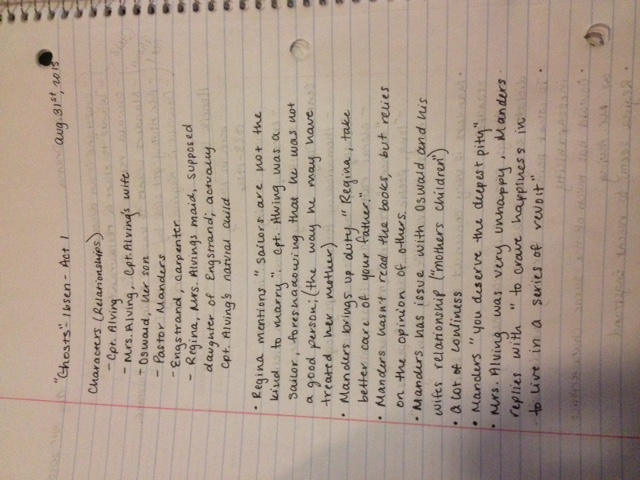 "Ghosts" - Ibsen - Act 1 Aug. 31st, 2015
Characters (Relationships)
- Cpt. Alving
- Mrs. Alving, Cpt. Alving's wife
- Oswald, her son
- Pastor Manders
- Engstrand, carpenter
- Regina, Mrs. Alvings maid, supposed
daughter of Engstrand; actually
Cpt. Alving's natural child
• Regina mentions "Sailors are not the
kind to marry". Cpt. Alving was a
sailor, foreshadowing that he was not
a good person; (the way he may have
treated her mother)
• Manders brings up duty "Regina, take
better care of your father."
• Manders hasn't read the books, but relies
on the opinion of others.
• Manders has issue with Oswald and his
wifes relationship ("mothers children")
• A lot of lonliness
• Manders "you deserve the deepest pity"
• Mrs. Alving was very unhappy, Manders
replies with "to crave happiness in
to live in a series of revolt"